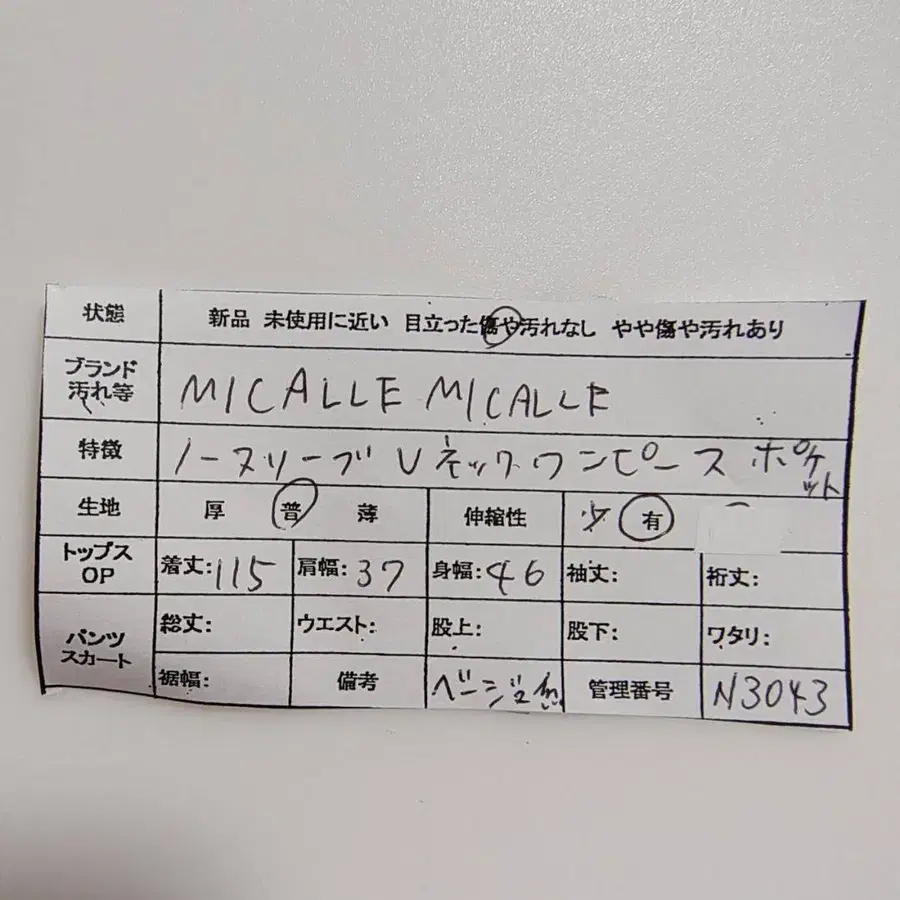 状態 新品 未使用に近い 目立った傷や汚れなし やや傷や汚れあり
ブランド
汚れ等 MICALLE MICALLE
特徴 ノースリーブ Vネックワンピース ポケット
生地 厚 普 薄 伸縮性 少 有
トップス
OP 着丈:115 肩幅:37 身幅:46 袖丈: 裄丈:
パンツ
スカート 総丈: ウエスト: 股上: 股下: ワタリ:
裾幅: 備考 ベージュ 管理番号 N3043